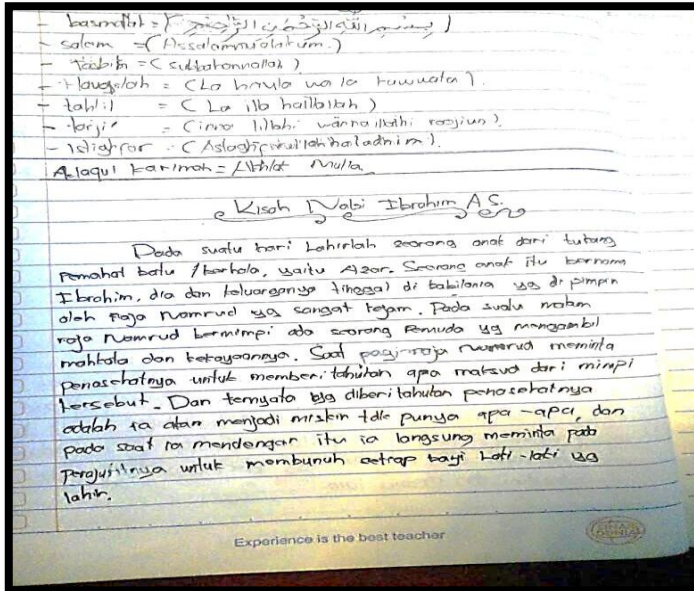 - basmallah = (بِسْمِ اللَّهِ الرَّحْمَٰنِ الرَّحِيْمِ)
- salam = (Assalammualaikum.)
- tasbih = ( subhahannallah )
- Hauqolah = (La haula wa la kuwwata).
- tahlil = ( La ilb hailallah )
- tarji' = (inna lillahi wanna illaihi roojiun).
- Istighfar = (Astaghfirullahhaladhim).
Ahlaqul karimah = Akhlak Mulia
Kisah Nabi Ibrahim A.S.
Pada suatu hari Lahirlah seorang anak dari tukang
pemahat batu / berhala, yaitu Azar. Seorang anak itu bernama
Ibrahim, dia dan keluarganya tinggal di babilonia yg di pimpin
oleh Raja Namrud yg sangat kejam. Pada suatu malam
raja Namrud bermimpi ada seorang Pemuda yg mengambil
mahkota dan kekayaannya. Saat pagi raja Namrud meminta
penasehatnya untuk memberitahukan apa maksud dari mimpi
tersebut. Dan ternyata yg diberitahukan penasehatnya
adalah ia akan menjadi miskin tdk punya apa-apa, dan
pada saat ia mendengar itu ia langsung meminta pada
Prajuritnya untuk membunuh setiap bayi laki-laki yg
lahir.
Experience is the best teacher
SINAR DUNIA